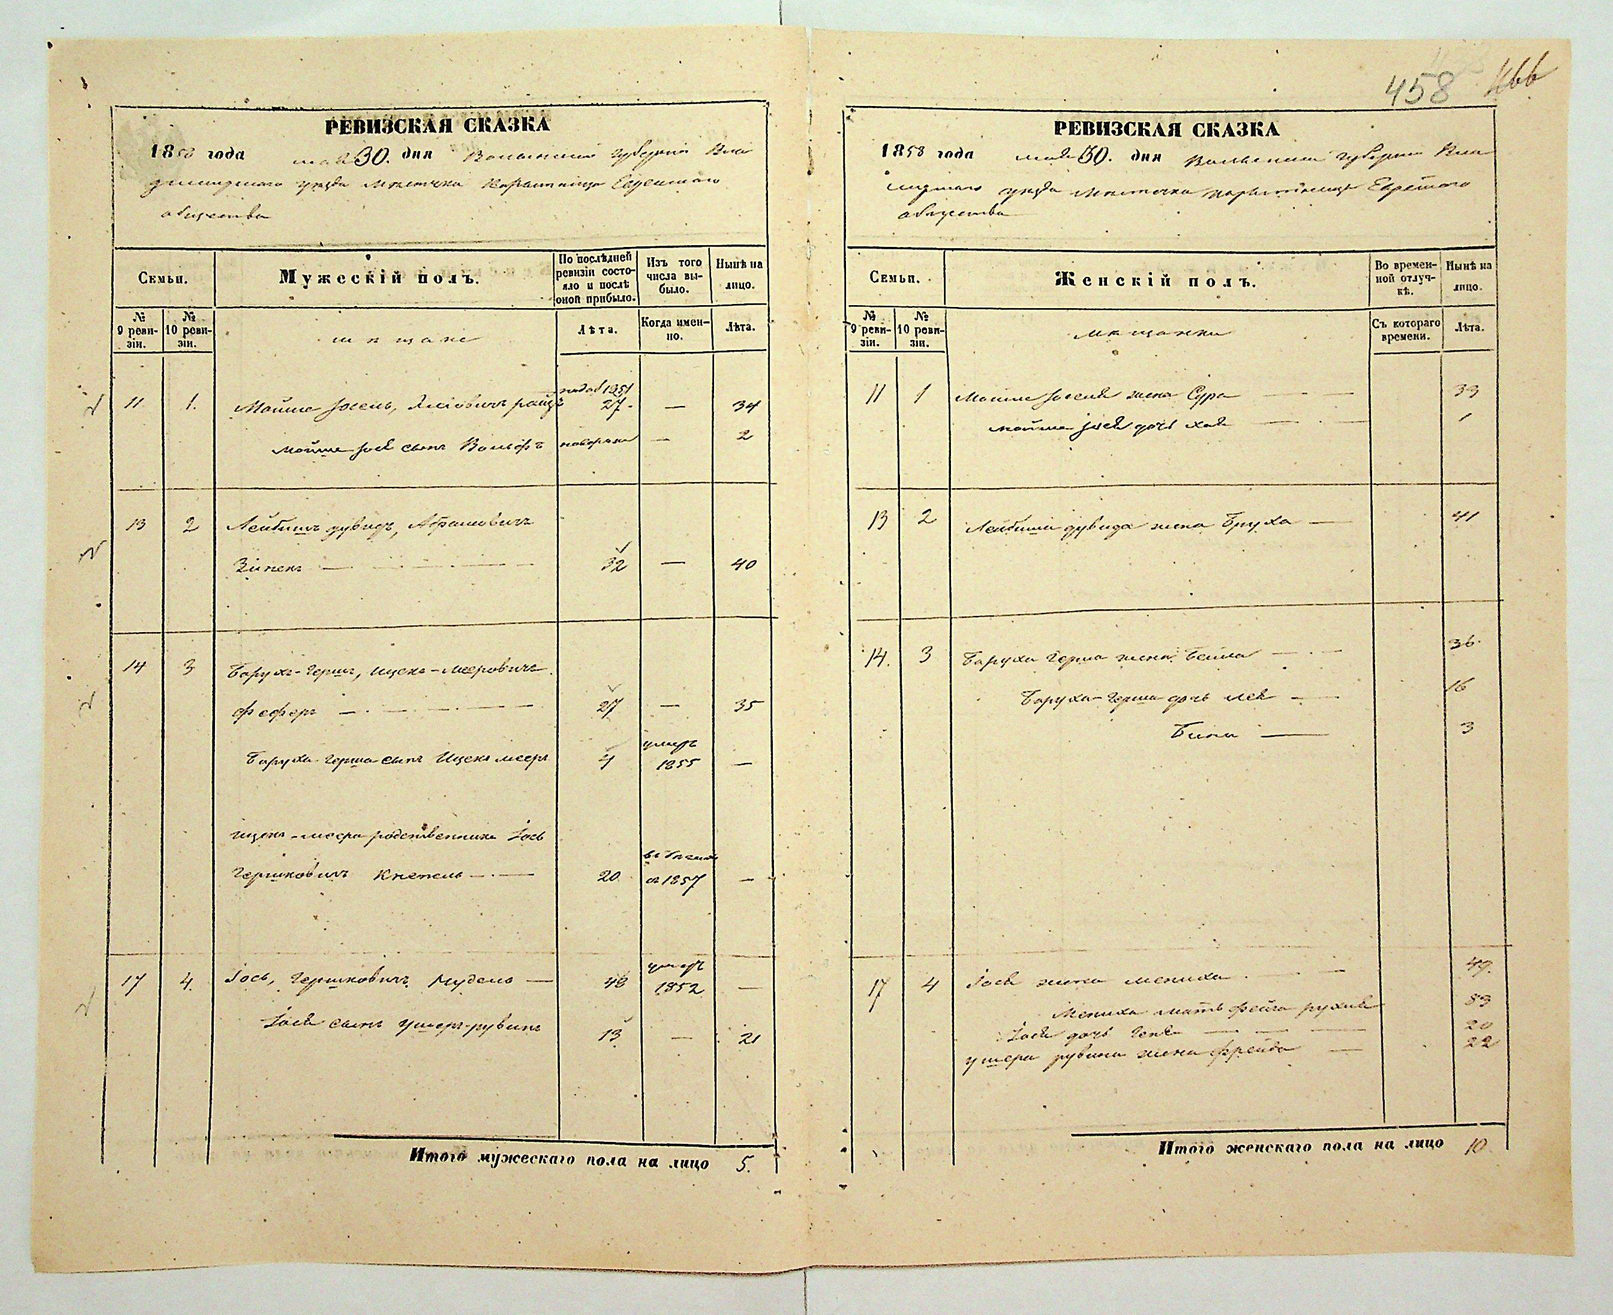 458 466
РЕВИЗСКАЯ СКАЗКА
1858 года мая 30. дня Волынской Губерніи Вла
димирскаго уезда местечка Еврейскаго
общества
Семьи.
Мужескій полъ.
По послѣдней ревизіи состояло и послѣ оной прибыло.
Изъ того числа выбыло.
Нынѣ на лицо.
№ 9 ревизіи.
№ 10 ревизіи.
мещане
Лѣта.
Когда именно.
Лѣта.
11. 1. Мойше Іосель, 27. — 34
Мойше Іося сынъ Вольфъ — 2
13 2 Лейбишъ Дувидъ, Абрамовичъ
32 — 40
14 3 Барухъ-Герш, Ицекъ-Мееровичъ
Феферъ — 27 — 35
умеръ
Баруха Герша сынъ Ицекъ Меер 4 1855 —
Ицека-Меера родственникъ Іось
Гершковичъ 20 1857 —
умеръ
17 4. Іось, Гершковичъ Нудель — 48 1852 —
Іося сынъ Ушеръ-Рувинъ 13 — 21
Итого мужескаго пола на лицо 5.
РЕВИЗСКАЯ СКАЗКА
1858 года мая 30. дня Волынской Губерніи Вла
димирскаго уезда местечка Еврейскаго
общества
Семьи.
Женскій полъ.
Во временной отлучкѣ.
Нынѣ на лицо.
№ 9 ревизіи.
№ 10 ревизіи.
мещанки
Съ котораго времени.
Лѣта.
11 1 Мойше Іоселя жена Сура — 33
Мойше Іося дочь Хая — 1
13 2 Лейбиша Дувида жена Бруха — 41
14. 3 Баруха Герша жена Бейла — 36.
Баруха-Герша дочь Лея — 16
Бина — 3
17 4 Іося жена Мениха — 49.
Мениха мать Фейга Рухля 83
Іося дочь Геня — 20
Ушера Рувина жена Фрейда — 22
Итого женскаго пола на лицо 10